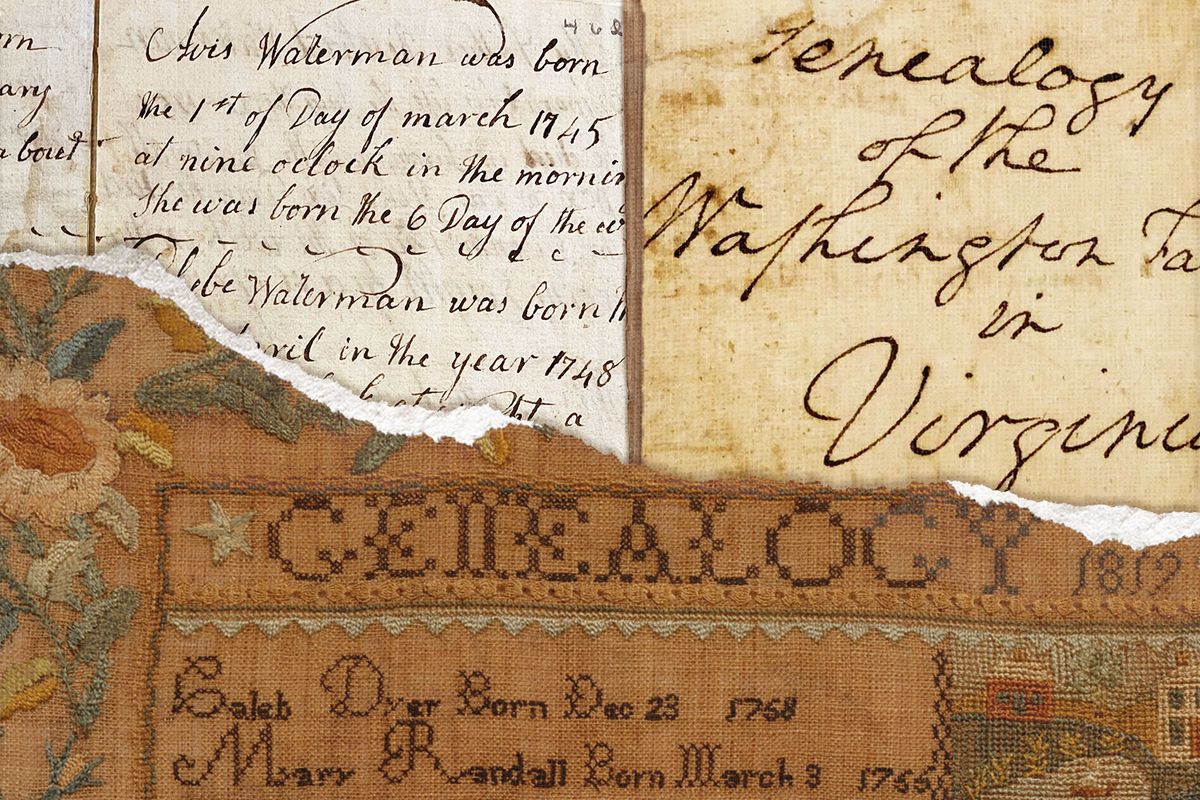 ary
about
462
Avis Waterman was born
the 1st of Day of march 1745
at nine oclock in the mornin
She was born the 6 Day of the
Phebe Waterman was born
April in the year 1748
a
Genealogy
of the
Waſhington Fa
in
Virginia
GENEALOGY 1819
Caleb Dyer Born Dec 23 1768
Mary Randall Born March 3 1766